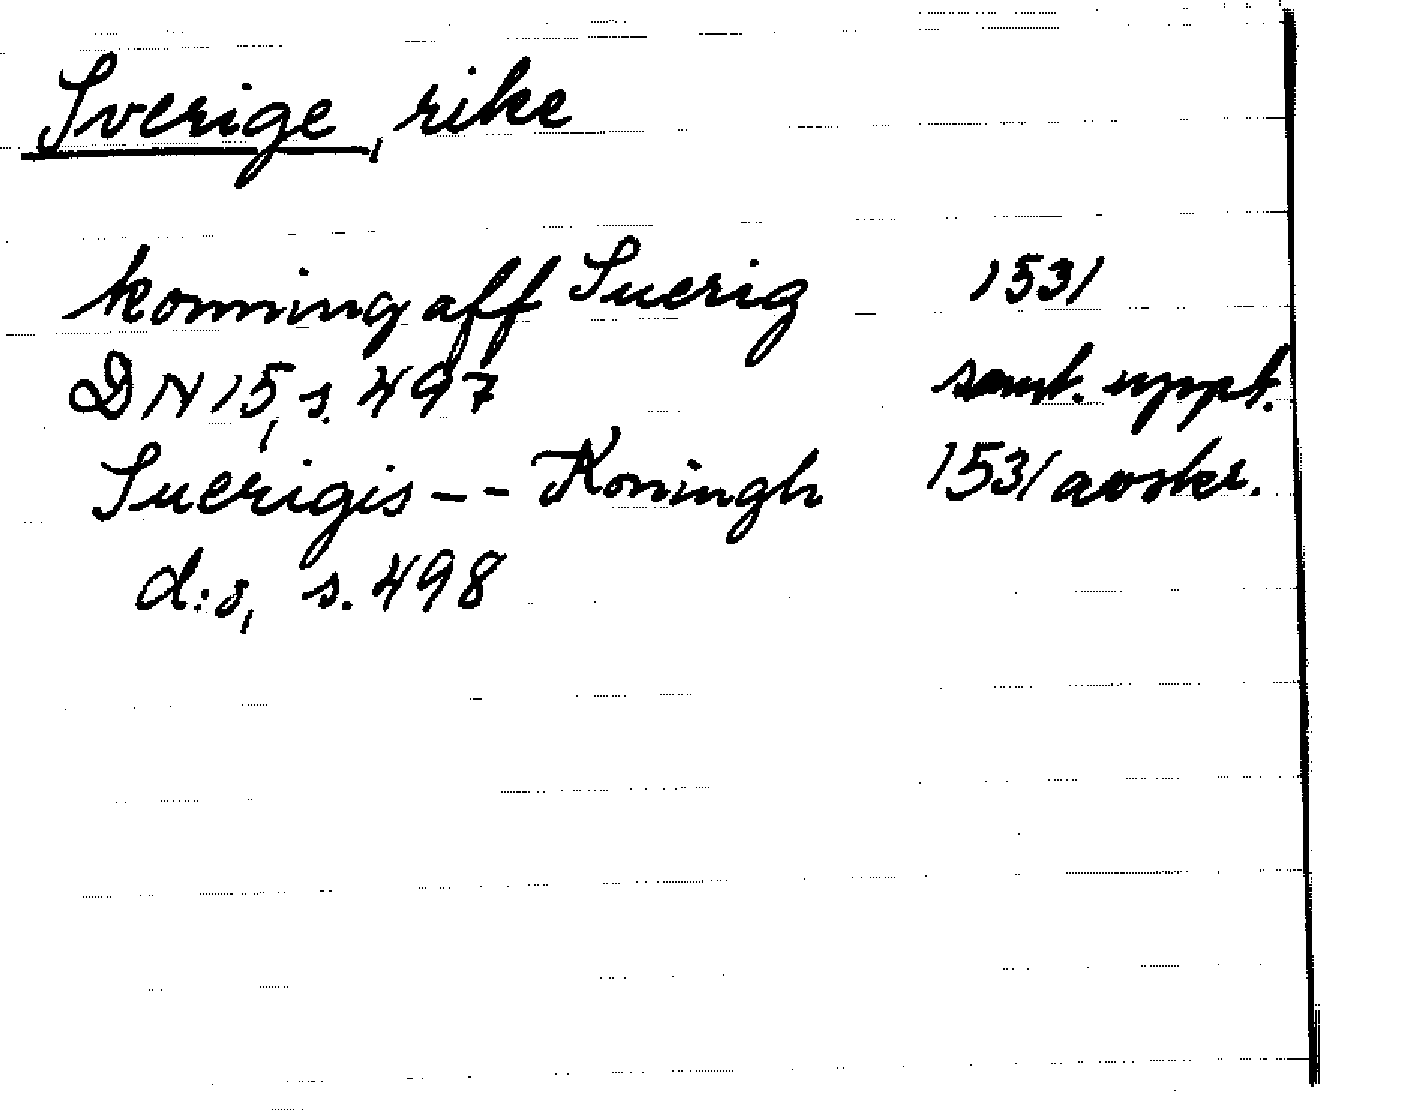 Sverige, rike
konning aff Suerig 1531
DN 15, s. 497 samt. uppt.
Suerigis -- Koningh 1531 avskr.
d:o, s. 498